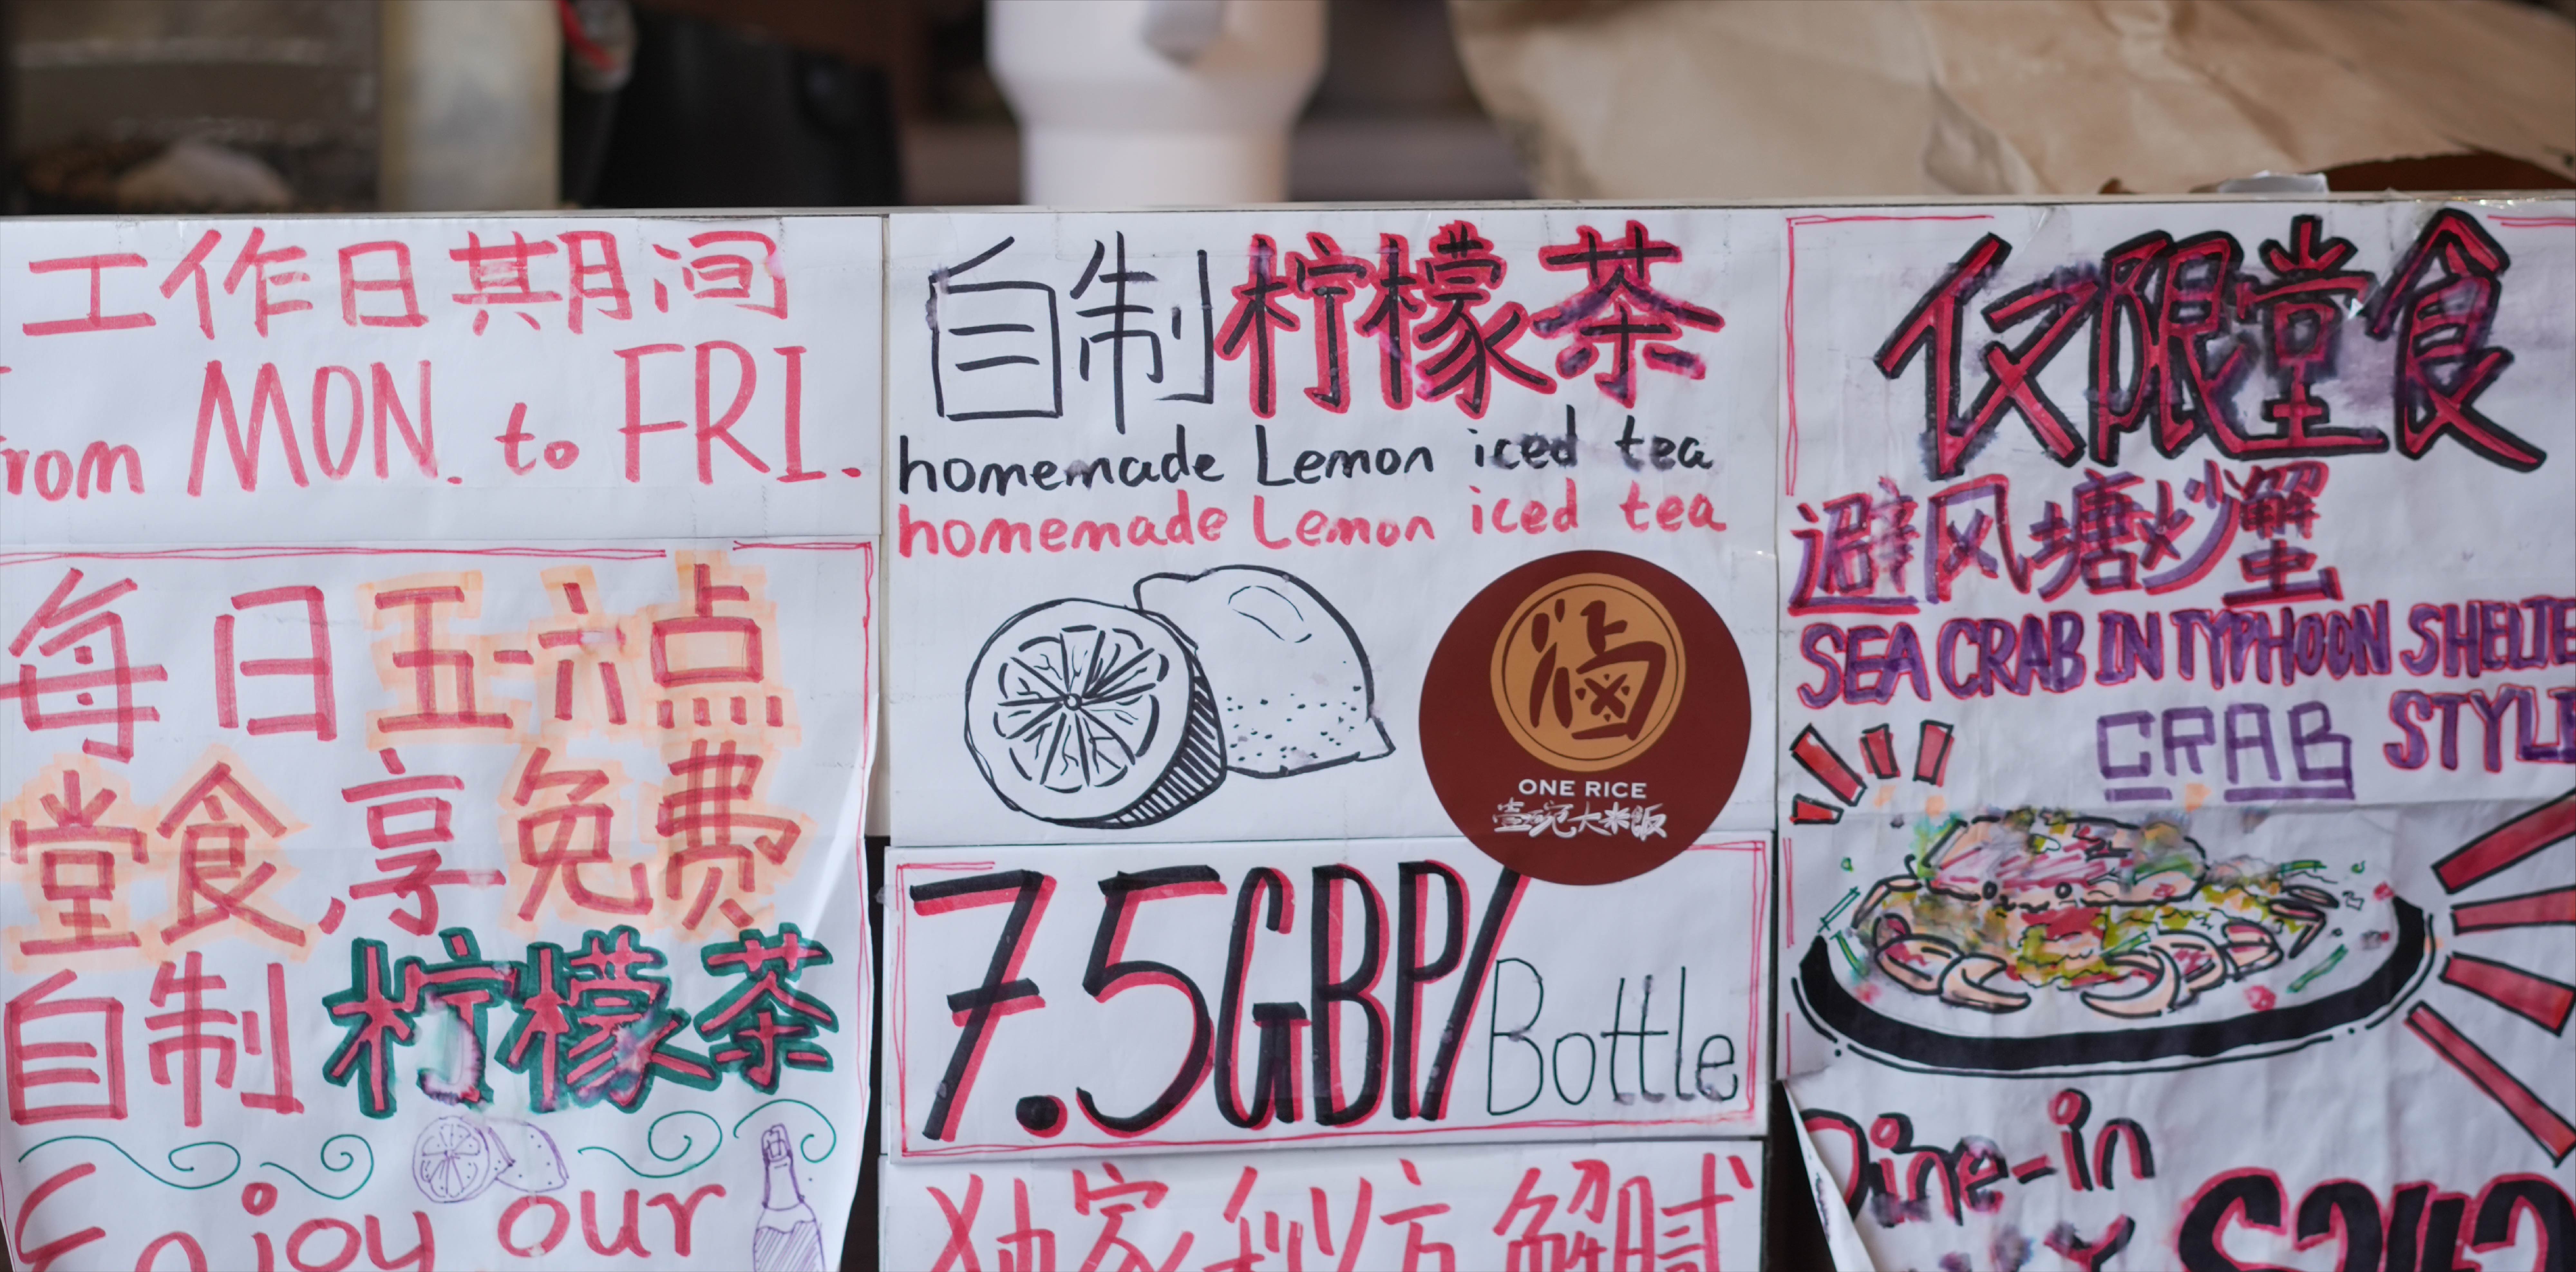 工作日期间
from MON. to FRI.
每日五-六点
堂食,享免费
自制柠檬茶
Enjoy our
自制柠檬茶
homemade Lemon iced tea
homemade Lemon iced tea
ONE RICE
壹碗大米飯
7.5GBP/Bottle
独家秘方解腻
仅限堂食
避风塘炒蟹
SEA CRAB IN TYPHOON SHELTE
STYLE
CRAB
Dine-in